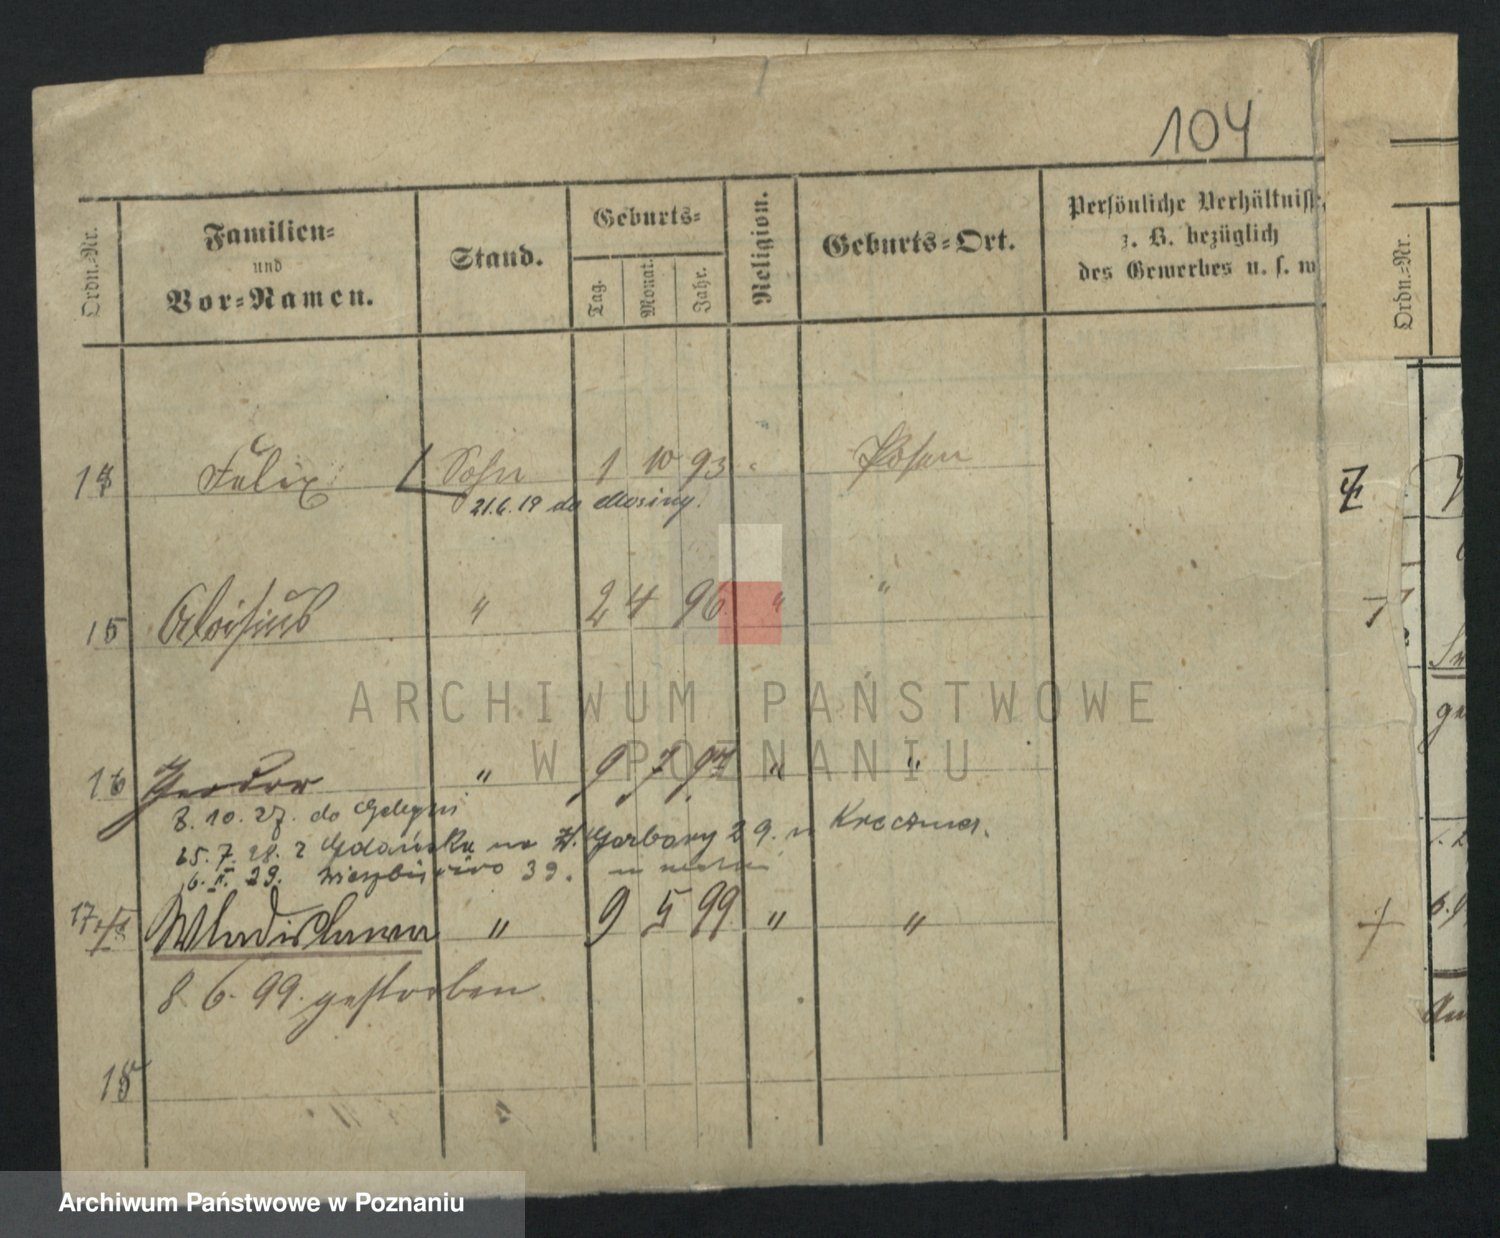 104
Ordn.-Nr.
Familien-
und
Vor-Namen.
Stand.
Geburts-
Tag.
Monat.
Jahr.
Religion.
Geburts-Ort.
Persönliche Verhältnisse,
z. B. bezüglich
des Gewerbes u. s. w
Ordn.-Nr.
Felix Sohn 1 10 93 Posen
21.6.19 do Mosiny.
15 Aloisius " 2 4 96 " "
ARCHIWUM PAŃSTWOWE
W POZNANIU
16 " 9 7 97 " "
8.10.27. do
25.7.28. z Gdańska na Garbary 29.
39.
17 Wladislawa " 9 5 99 " "
8.6.99. gestorben
18
Archiwum Państwowe w Poznaniu